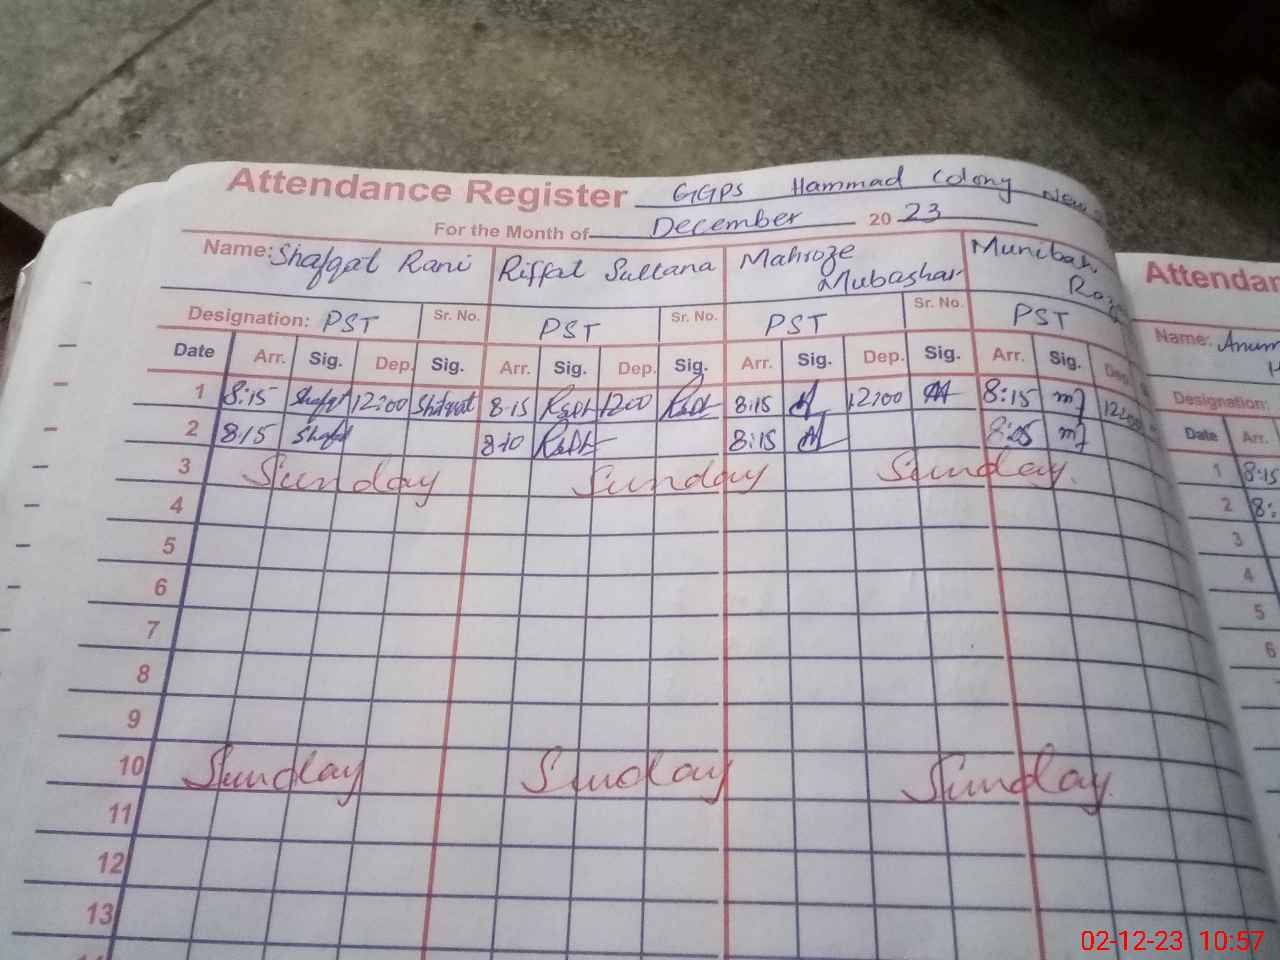 Attendance Register GGPS Hammad Colony New
For the Month of December 20 23
Name: Shafqat Rani Riffat Sultana Mahroze Mubashar Munibah
Designation: PST Sr. No. PST Sr. No. PST Sr. No. PST
Date Arr. Sig. Dep. Sig. Arr. Sig. Dep. Sig. Arr. Sig. Dep. Sig. Arr. Sig. Dep.
1 8:15 Shafqat 12:00 Shafqat 8:15 1200 8:15 12:00 8:15 12:00
2 8:15 8:10 8:15
3 Sunday Sunday Sunday
4
5
6
7
8
9
10 Sunday Sunday Sunday
11
12
13
Attendan
Name: Anum
Designation:
Date Arr.
1 8:15
2 8:
3
4
5
6
02-12-23 10:57